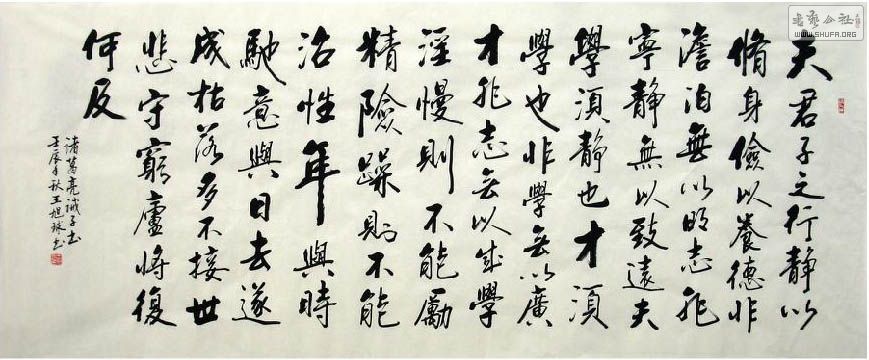 夫君子之行靜以
脩身儉以養德非
澹泊無以明志非
寧靜無以致遠夫
學須靜也才須
學也非學无以廣
才非志无以成學
淫慢則不能勵
精險躁則不能
治性年與時
馳意與日去遂
成枯落多不接世
悲守窮廬將復
何及
諸葛亮誡子書
壬辰年秋王旭球书
书艺公社
WWW.SHUFA.ORG